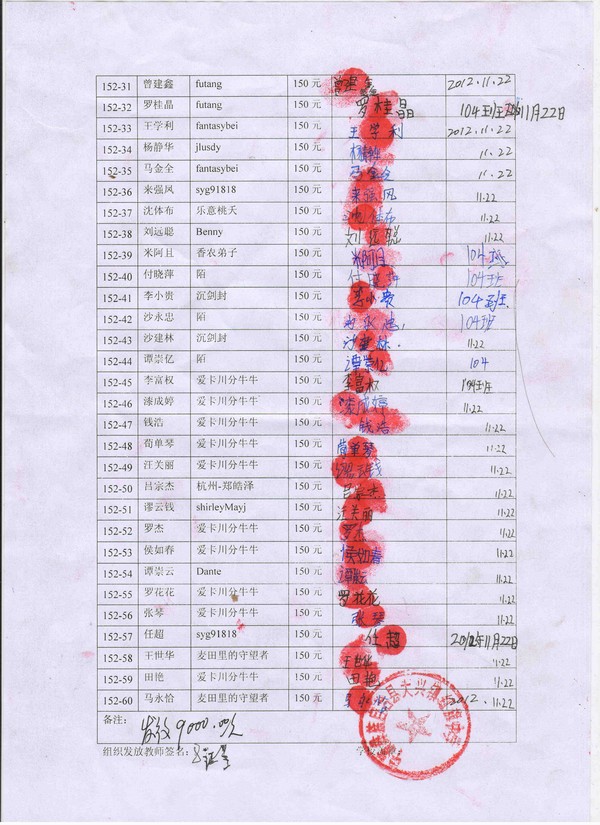 152-31 曾建鑫 futang 150 元 2012.11.22
152-32 罗桂晶 futang 150 元 罗桂晶 104班 11月22日
152-33 王学利 fantasybei 150 元 王学利 2012.11.22
152-34 杨静华 jlusdy 150 元 11.22
152-35 马金全 fantasybei 150 元 马金全 11.22
152-36 来强风 syg91818 150 元 来强风 11.22
152-37 沈体布 乐意桃夭 150 元 沈体布 11.22
152-38 刘远聪 Benny 150 元 刘远聪 11.22
152-39 米阿且 香农弟子 150 元 米阿且 104班
152-40 付晓萍 陌 150 元 104班
152-41 李小贵 沉剑封 150 元 李小贵 104班
152-42 沙永忠 陌 150 元 104班
152-43 沙建林 沉剑封 150 元 沙建林 11.22
152-44 谭崇亿 陌 150 元 谭崇亿 104
152-45 李富权 爱卡川分牛牛 150 元 李富权 104班
152-46 漆成婷 爱卡川分牛牛 150 元 漆成婷 11.22
152-47 钱浩 爱卡川分牛牛 150 元 钱浩 11.22
152-48 荀单琴 爱卡川分牛牛 150 元 11.22
152-49 汪关丽 爱卡川分牛牛 150 元 11.22
152-50 吕宗杰 杭州-郑皓泽 150 元 吕宗杰 11.22
152-51 谬云钱 shirleyMayj 150 元 汪关丽 11.22
152-52 罗杰 爱卡川分牛牛 150 元 罗杰 11.22
152-53 侯如春 爱卡川分牛牛 150 元 侯如春 11.22
152-54 谭崇云 Dante 150 元 11.22
152-55 罗花花 爱卡川分牛牛 150 元 罗花花 11.22
152-56 张琴 爱卡川分牛牛 150 元 张琴 11.22
152-57 任超 syg91818 150 元 任超 2012年11月22日
152-58 王世华 麦田里的守望者 150 元 王世华 11.22
152-59 田艳 麦田里的守望者 150 元 田艳 11.22
152-60 马永恰 麦田里的守望者 150 元 2012.11.22
备注：
发放9000.00元
组织发放教师签名：